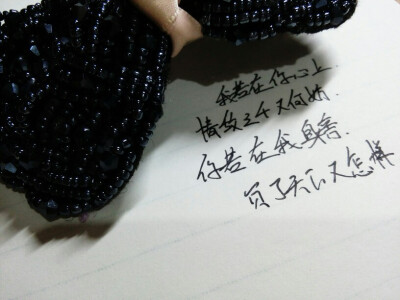 我若在你心上.
情敌三千又何妨.
你若在我身旁.
负了天下又怎样